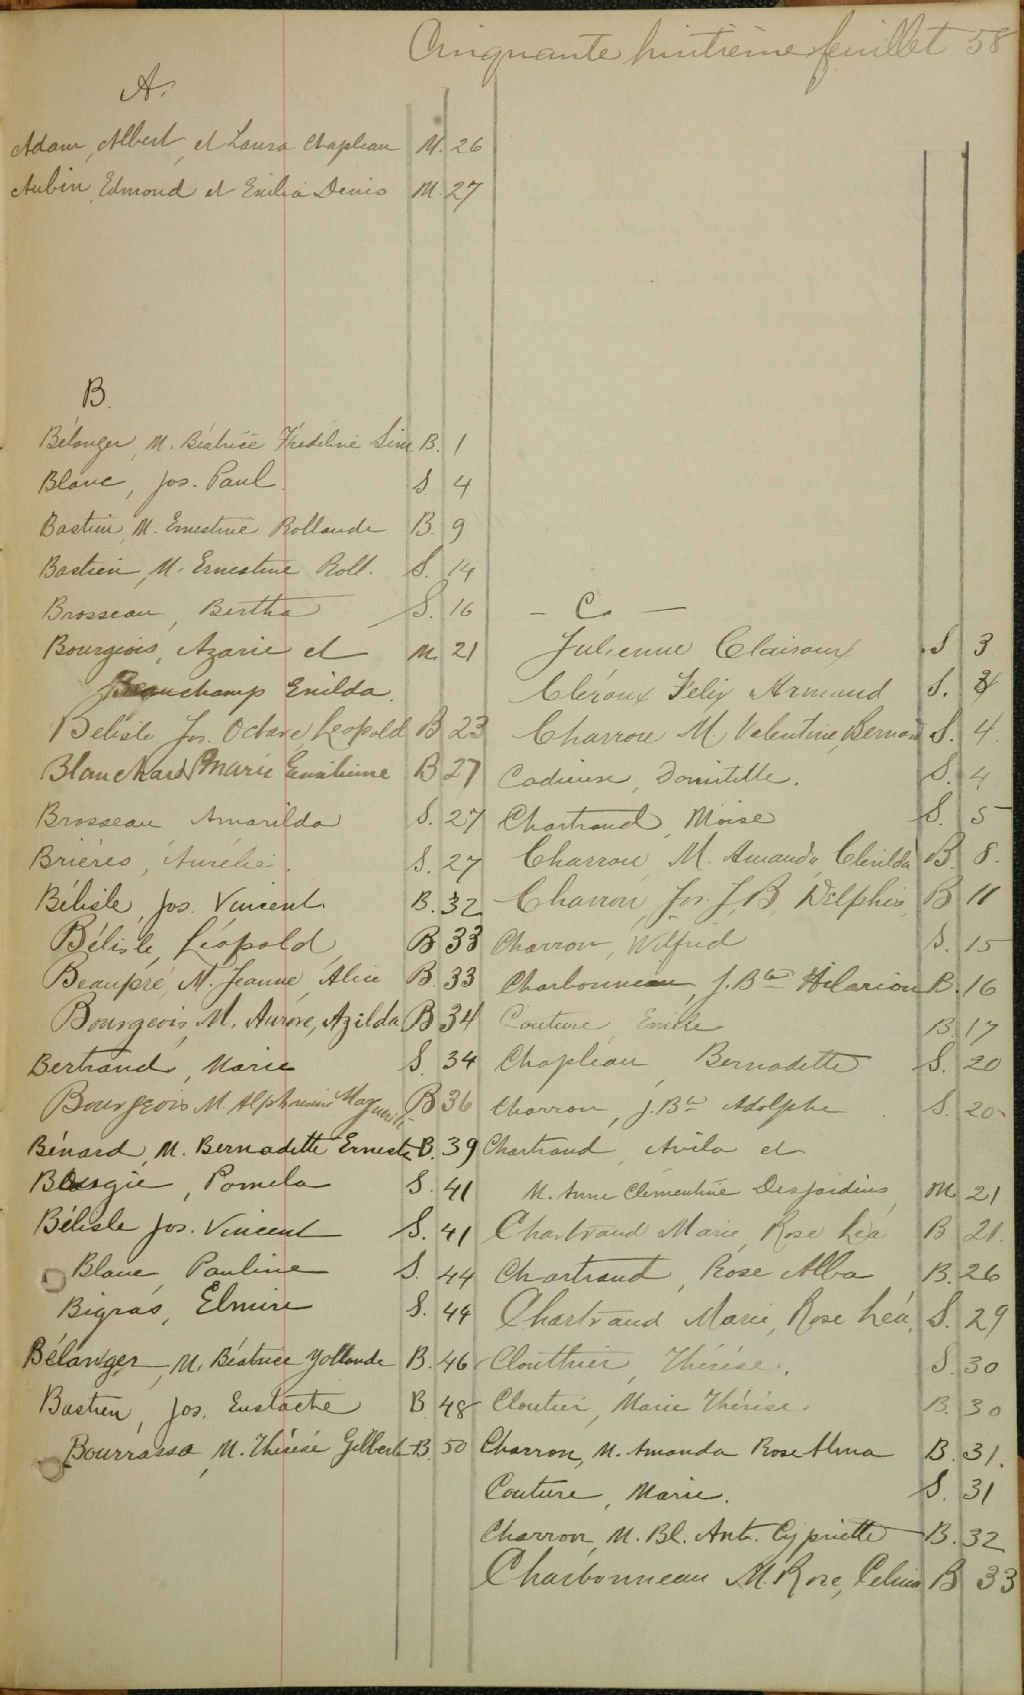 Cinquante huitième feuillet 58
A.
Adam, Albert, et Laura Chapleau M. 26
Aubin, Edmond et Exilia Denis M. 27
B.
Bélanger, M. Béatrice Frédéline B. 1
Blanc, Jos. Paul. S 4
Bastien, M. Ernestine Rollande B. 9
Bastien, M. Ernestine Roll. S. 14
Brosseau, Bertha S. 16
Bourgeois, Azarie et M. 21
Beauchamp Enilda.
Belisle Jos. Octave, Leopold B 23
Blanchard Marie Emilienne B 27
Brosseau Amarilda S. 27
Brières, Aurélie. S. 27
Bélisle, Jos. Vincent. B. 32
Bélisle, Léopold, B 33
Beaupré, M. Jeanne, Alice B. 33
Bourgeois, M. Aurore, Azilda B 34
Bertrand, Marie S. 34
Bourgeois M. Alphonsine Marguerite B 36
Bénard, M. Bernadette Ernestine B. 39
Bougie, Pomela S. 41
Bélisle Jos. Vincent S. 41
Blanc, Pauline S. 44
Bigras, Elmire S. 44
Bélanger, M. Béatrice Yollande B. 46
Bastien, Jos. Eustache B 48
Bourrassa, M. Thérèse Gilberte B. 50
- C. -
Julienne Clairoux S 3
Cléroux Felix Armand S. 3
Charron M. Valentine, Bernard S. 4
Cadieux, Domitille. S. 4
Chartrand, Moïse S. 5
Charron, M. Amanda, Clenilda B. 8.
Charron, Jos. J. B. Delphis, B 11
Charron, Wilfrid S. 15
Charbonneau, J. Bte Hilarion B. 16
Couture, Emile B. 17
Chapleau, Bernadette S. 20
Charron, J. Bte Adolphe S. 20
Chartrand, Avila et
M. Anne Clémentine Desjardins M 21
Chartrand Marie, Rose Léa B 21.
Chartrand, Rose Alba B. 26
Chartrand Marie, Rose Léa, S. 29
Clouthier, Thérèse. S. 30
Cloutier, Marie Thérèse. B. 30
Charron, M. Amanda Rose Alma B. 31.
Couture, Marie. S. 31
Charron, M. Bl. Ant. Cypriette B. 32
Charbonneau M. Rose, Celina B 33